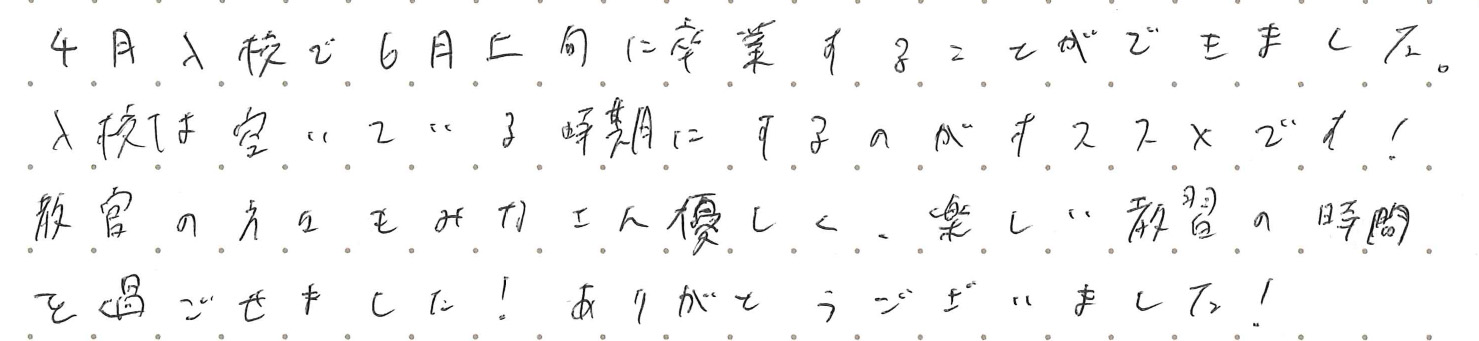 4月入校で6月上旬に卒業することができました。
入校は空いている時期にするのがオススメです!
教官の方々もみなさん優しく、楽しい教習の時間
を過ごせました!ありがとうございました!